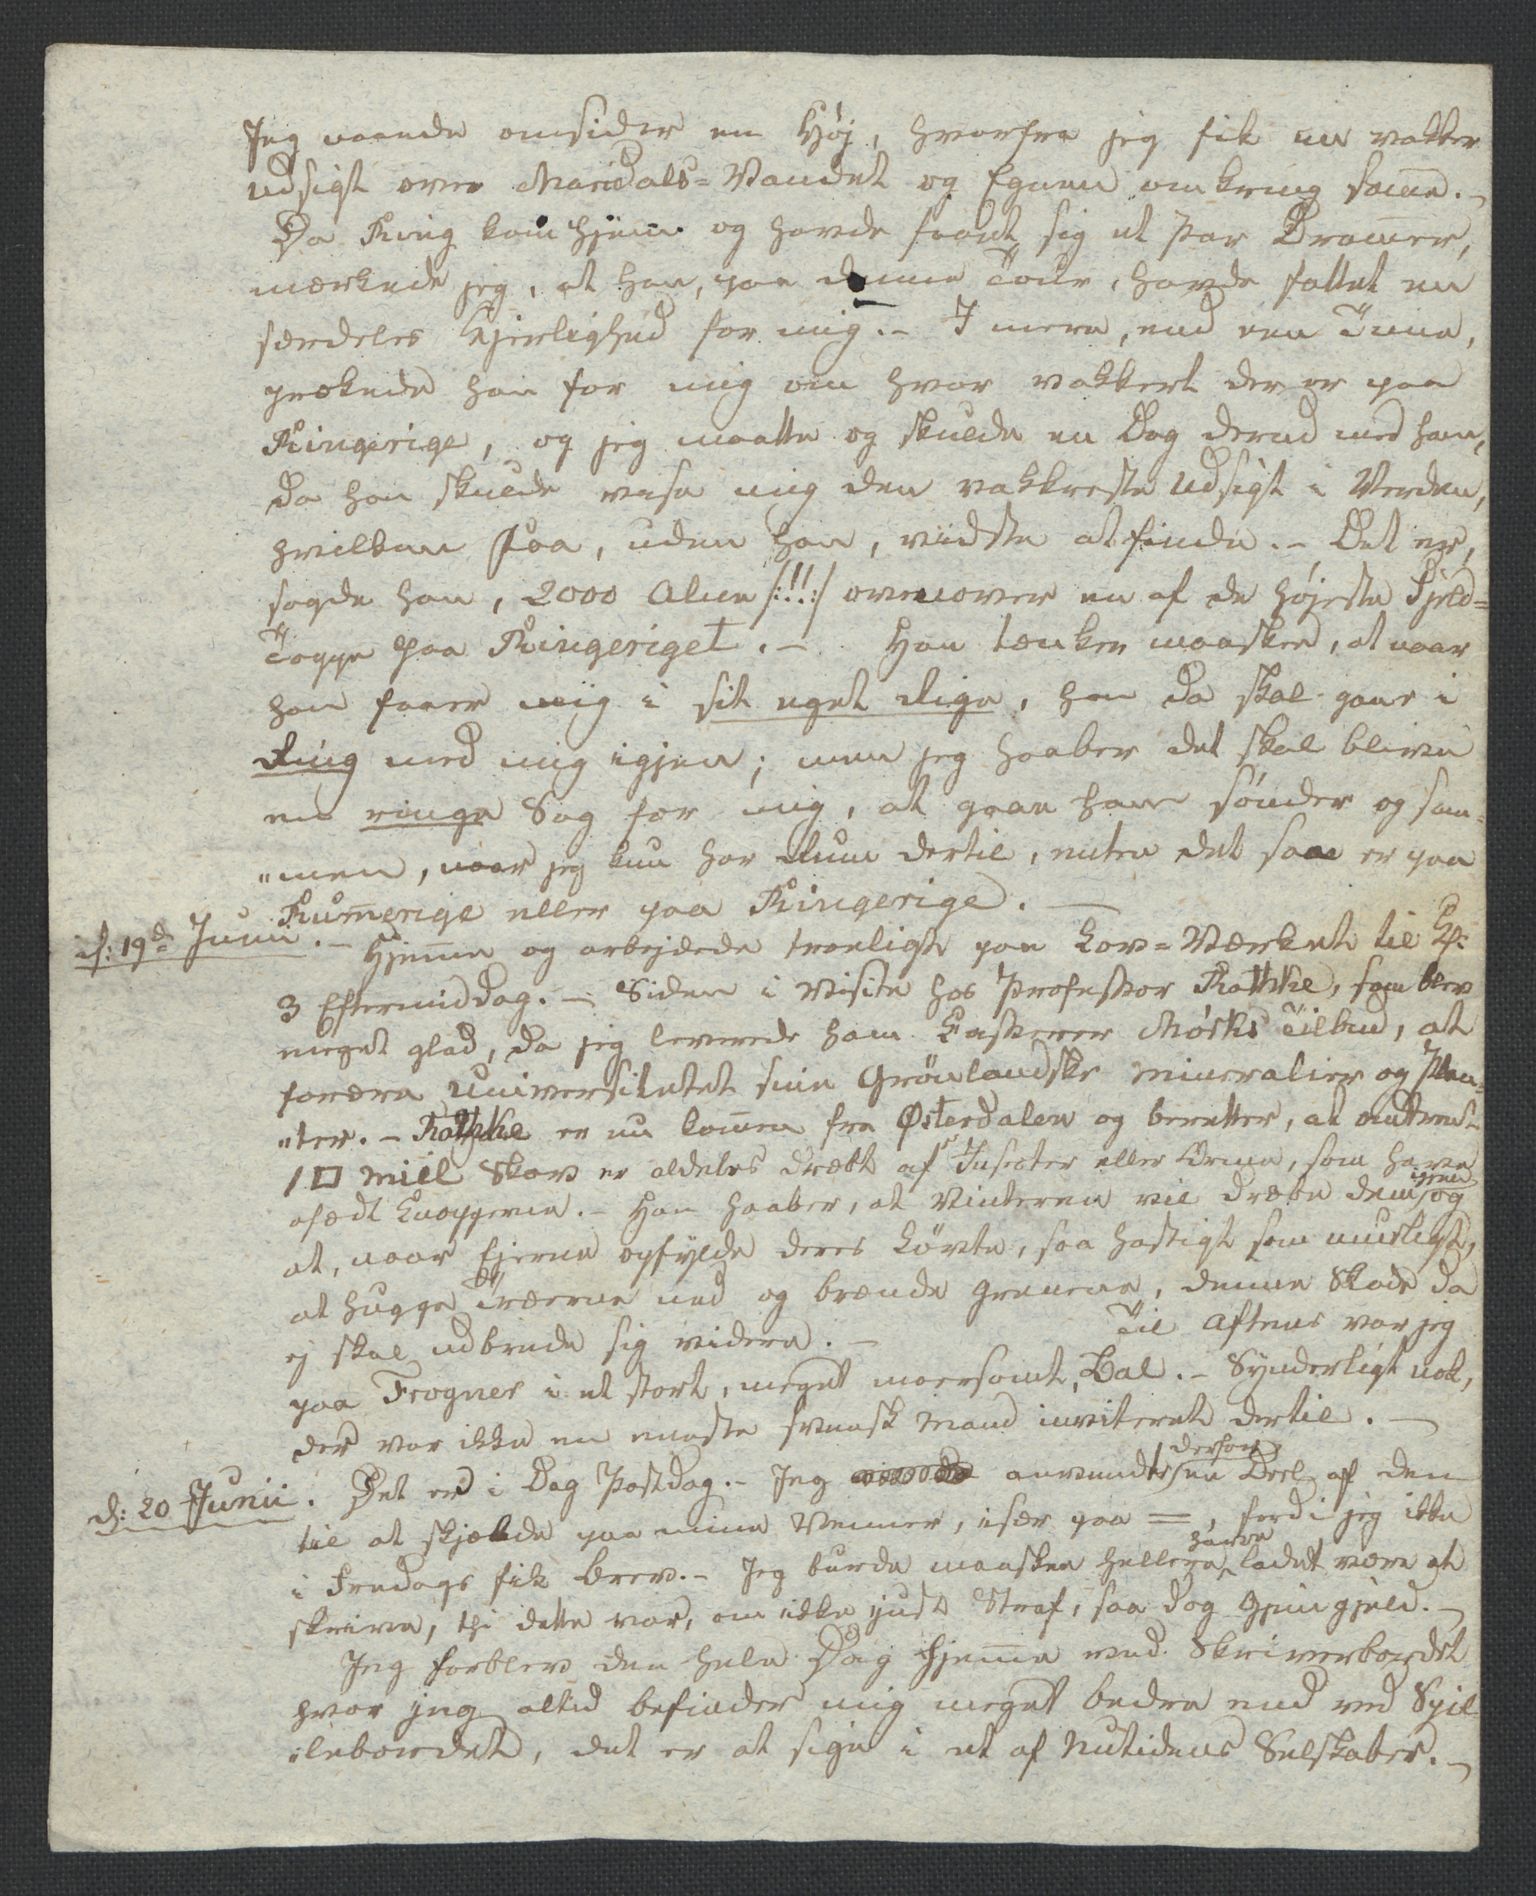 Jeg naaede omsider en Høj, hvorfra jeg fik en vakker
udsigt over Maridals=Vandet og Egnen omkring samme. –
Da Ring kom hjem og havde faaet sig et Par Drammer,
mærkede jeg, at han, paa denne Tour, havde fattet en
særdeles Kjerlighed for mig. – I mere, end een Time,
prækede han for mig om hvor vakkert der er paa
Ringerige, og jeg maatte og skulde en Dag derud med ham,
da han skulde vise mig den vakkreste Udsigt i Verden,
hvilken Faa, uden han, vidste at finde. – Det er,
sagde han, 2000 Alen /:!!:/ ovenover en af de højeste Fjeld=
Toppe paa Ringeriget. – Han tænker maaskee, at naar
han faaer mig i sit eget Rige, han da skal gaae i
Ring med mig igjen; men jeg haaber det skal blive
en ringe Sag for mig, at gaae ham sönder og sam=
"men, naar jeg kun har Rum dertil, enten det saa er paa
Rummerige eller paa Ringerige. –
d: 19de Junii. – Hjemme og arbejdede troeligt paa Lov=Værket til Kl:
3 Eftermiddag. – Siden i Visite hos Professor Rathke, som blev
meget glad, da jeg leverede ham Kasserer Mörks Tilbud, at
forære Universitetet sine Grönlandske Mineralier og Plan=
"ter. – Rathke er nu kommen fra Østerdalen og beretter, at omtrent
1 □ Miil Skov er aldeles dræbt af Insecter eller Orme, som have
afædt Knopperne. – Han haaber, at Vinteren vil dræbe dem igjen og
at, naar Ejerne opfylde deres Lövte, saa hastigt som mueligt,
at hugge Træerne ned og brænde Grenene, denne Skade da
ej skal udbrede sig videre. – Til Aftens var jeg
paa Frogner i et stort, meget moersomt, Bal. – Synderligt nok,
der var ikke en eneste svensk Mand inviteret dertil. –
d: 20 Junii. Det er i Dag Postdag. – Jeg anvendte derfor en Deel af den
til at skjælde paa mine Venner, især paa =, fordi jeg ikke
i Fredags fik Brev. – Jeg burde maaskee hellere have ladet være at
skrive, thi dette var, om ikke just Straf, saa dog Gjengjeld. –
Jeg forblev den hele Dag hjemme ved Skriverbordet
hvor jeg altid befinder mig meget bedre end ved Spil
"lebordet, det er at sige i et af Nutidens Selskaber. –